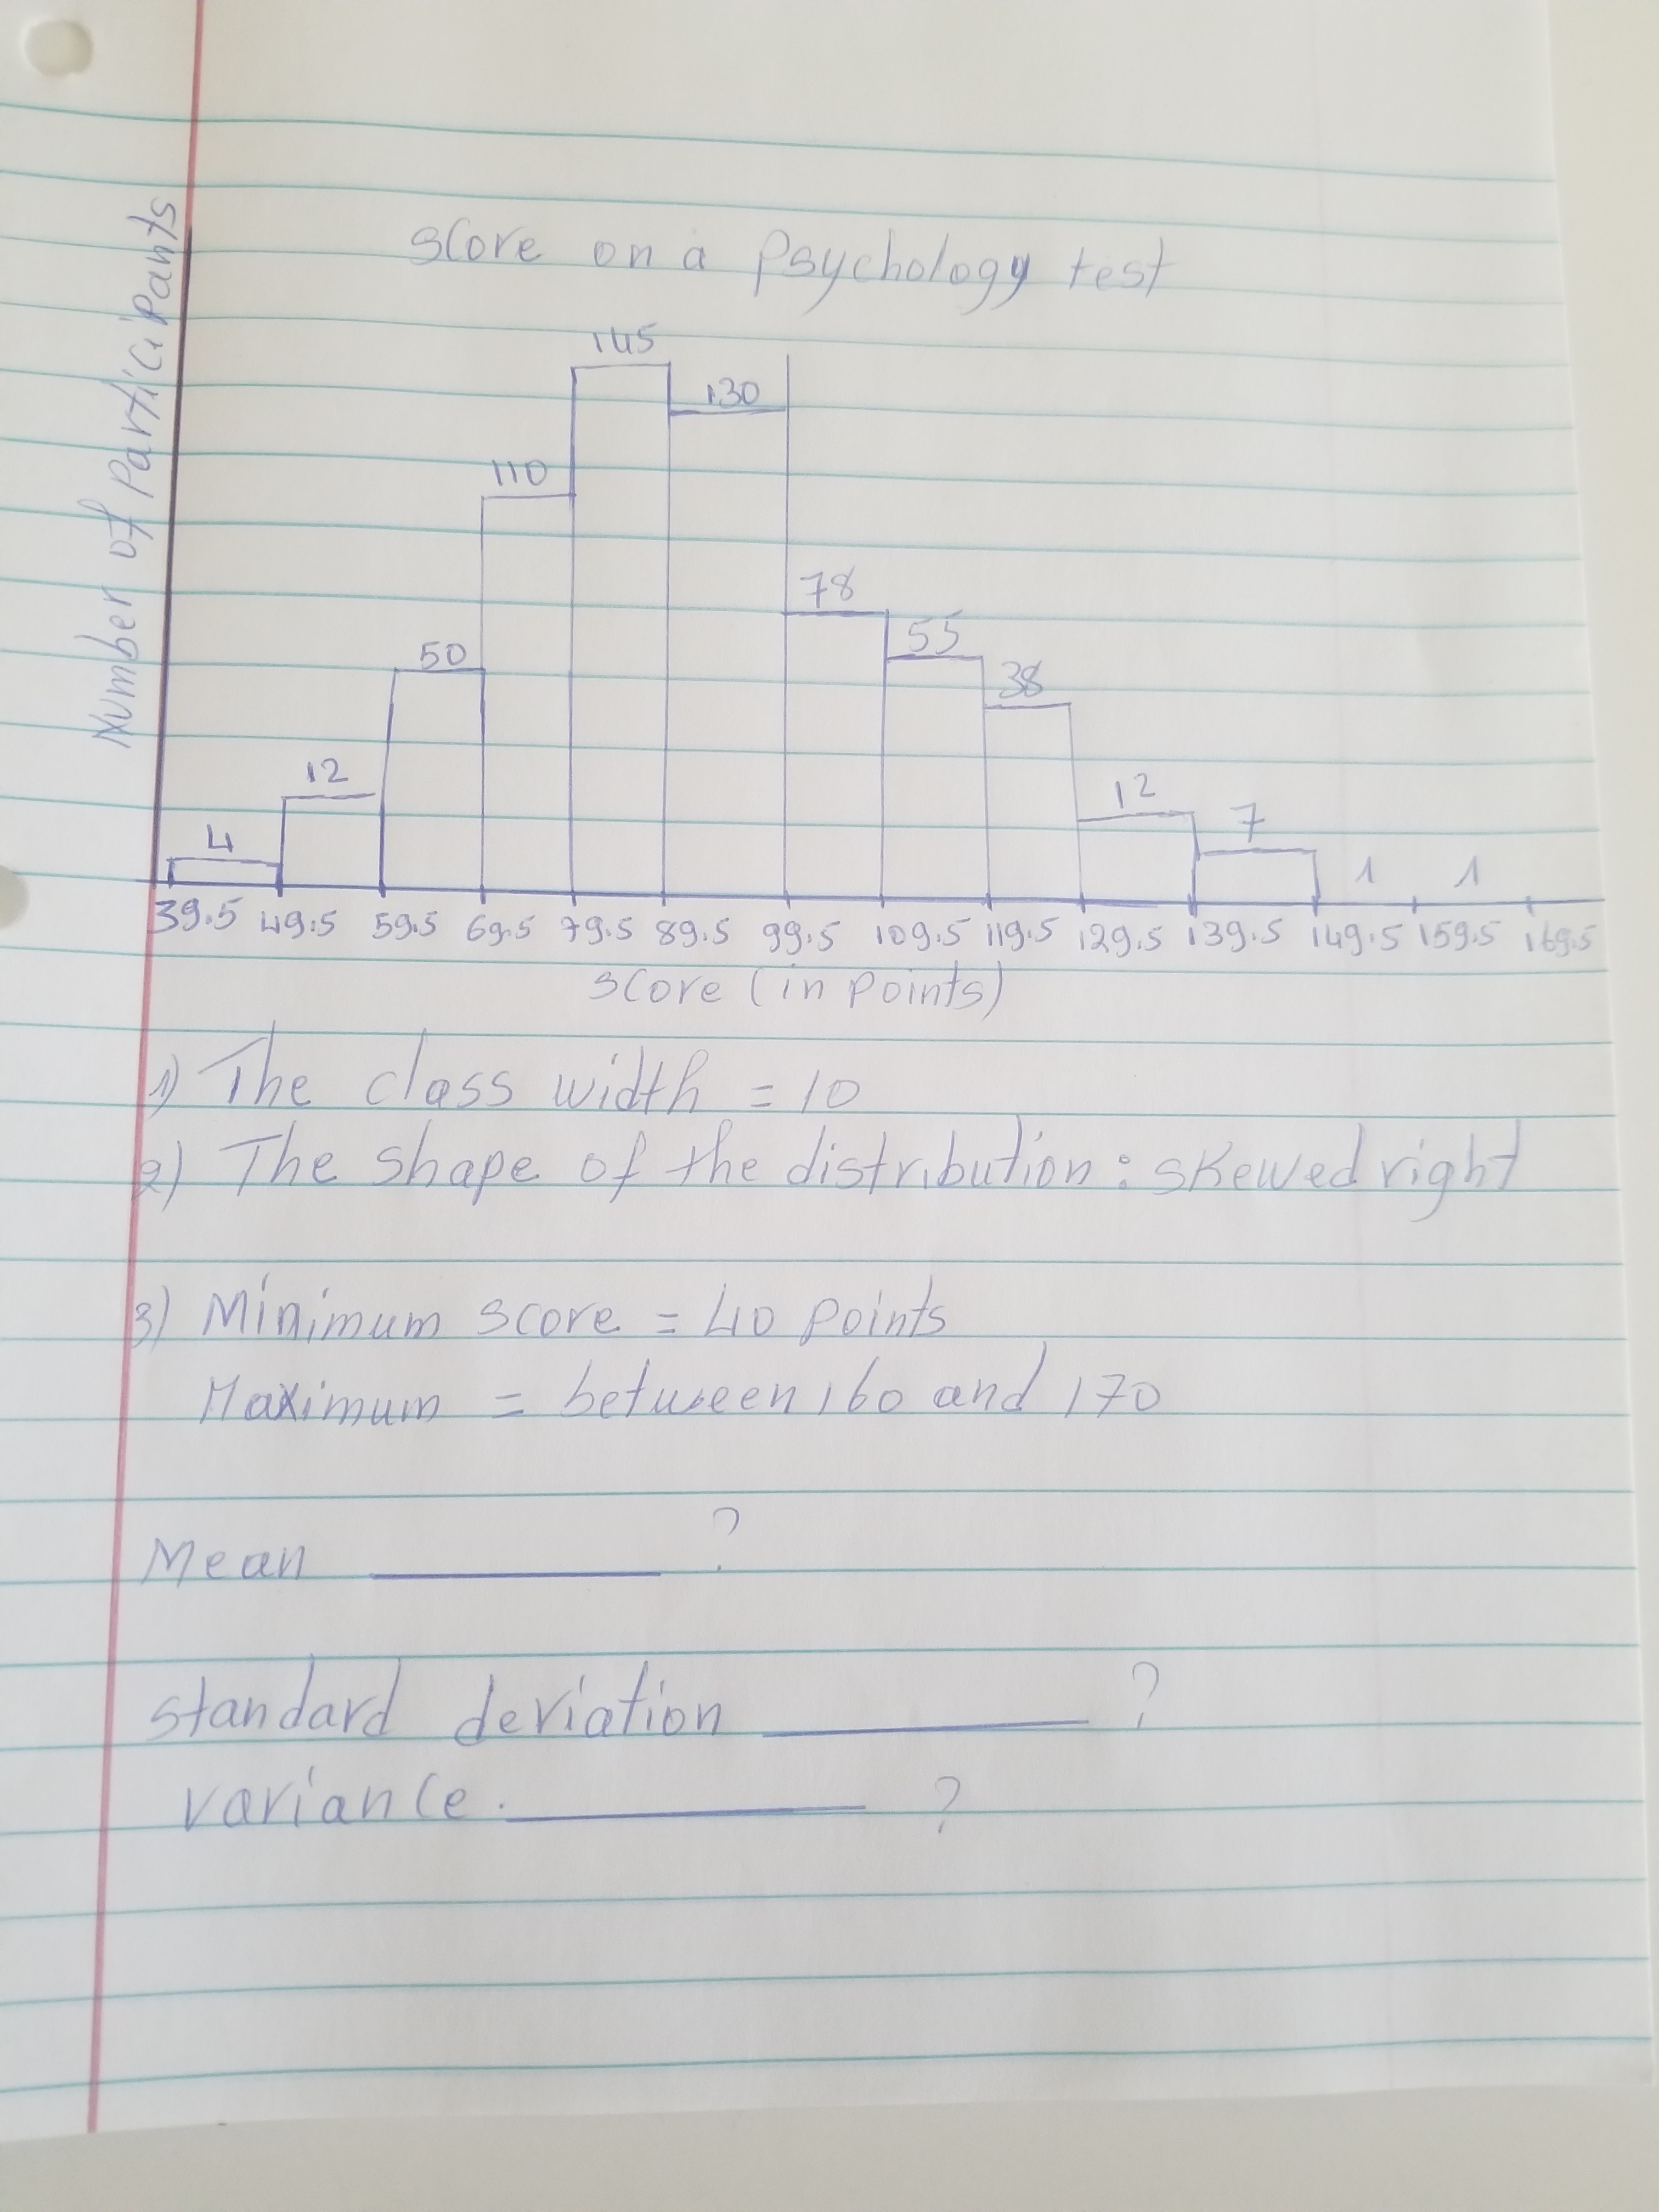 Score on a Psychology test
Number of Participants
145
130
110
78
50
55
38
12
12
7
4
1 1
39.5 49.5 59.5 69.5 79.5 89.5 99.5 109.5 119.5 129.5 139.5 149.5 159.5 169.5
Score (in points)
1) The class width = 10
2) The shape of the distribution: skewed right
3) Minimum score = 40 points
Maximum = between 160 and 170
Mean ________ ?
standard deviation ________ ?
variance. ________ ?